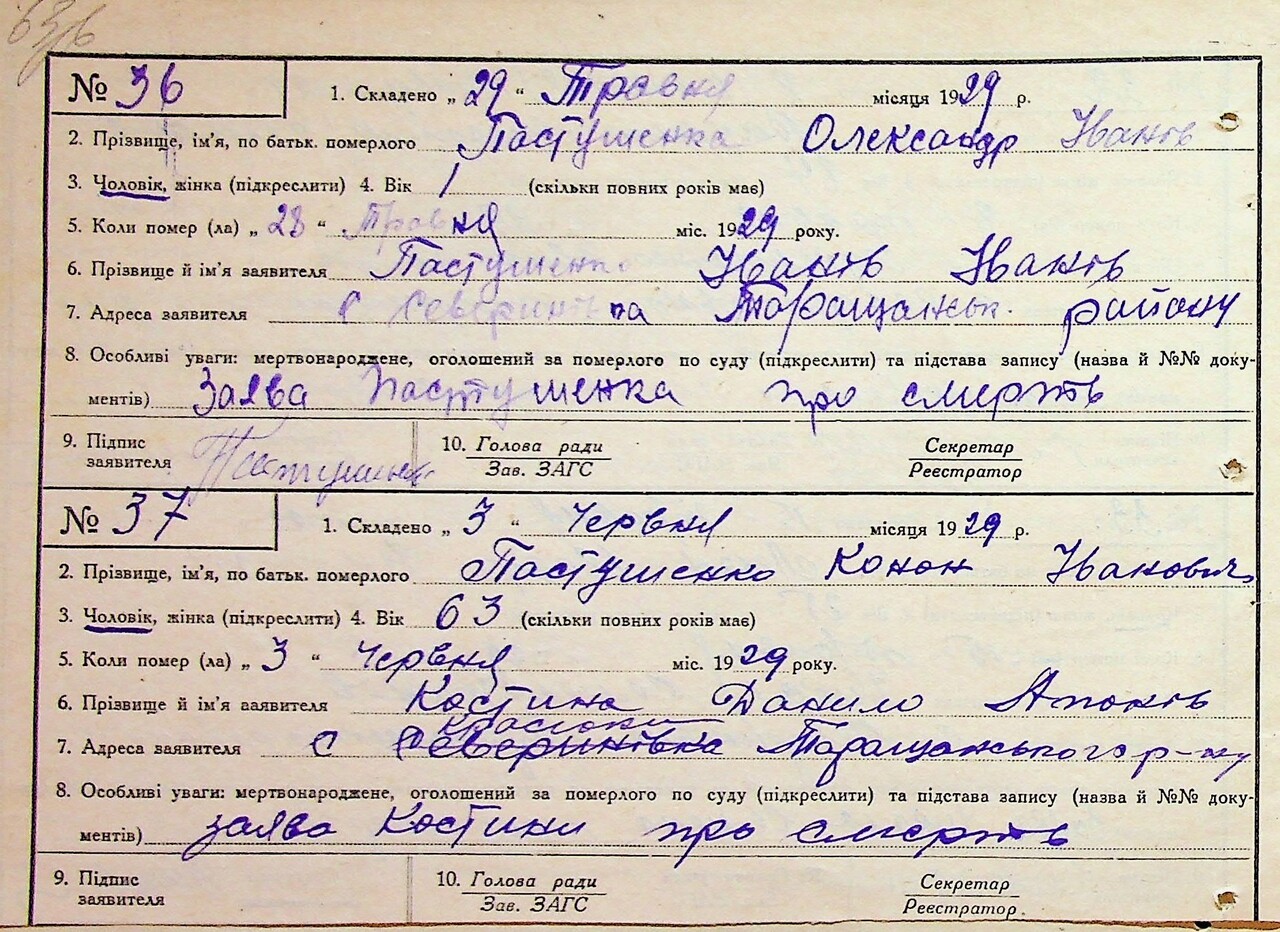 63/6
№ 36 1. Складено „ 29 “ Травня місяця 1929 р.
2. Прізвище, ім'я, по батьк. померлого Пастушенка Олександр Іванів
3. Чоловік, жінка (підкреслити) 4. Вік 1 (скільки повних років має)
5. Коли помер (ла) „ 28 “ Травня міс. 1929 року.
6. Прізвище й ім'я заявителя Пастушенко Іванів Іванів
7. Адреса заявителя С Северинівка Таращанськ. району
8. Особливі уваги: мертвонароджене, оголошений за померлого по суду (підкреслити) та підстава запису (назва й №№ доку-
ментів) Заява Пастушенка про смерть
9. Підпис заявителя Пастушенко 10. Голова ради Секретар
Зав. ЗАГС Реєстратор
№ 37 1. Складено „ 3 “ Червня місяця 1929 р.
2. Прізвище, ім'я, по батьк. померлого Пастушенко Конон Іванович
3. Чоловік, жінка (підкреслити) 4. Вік 63 (скільки повних років має)
5. Коли помер (ла) „ 3 “ Червня міс. 1929 року.
6. Прізвище й ім'я заявителя Костина Данило
7. Адреса заявителя С Северинівка Таращанського р-ну
8. Особливі уваги: мертвонароджене, оголошений за померлого по суду (підкреслити) та підстава запису (назва й №№ доку-
ментів) заява Костини про смерть
9. Підпис заявителя 10. Голова ради Секретар
Зав. ЗАГС Реєстратор.